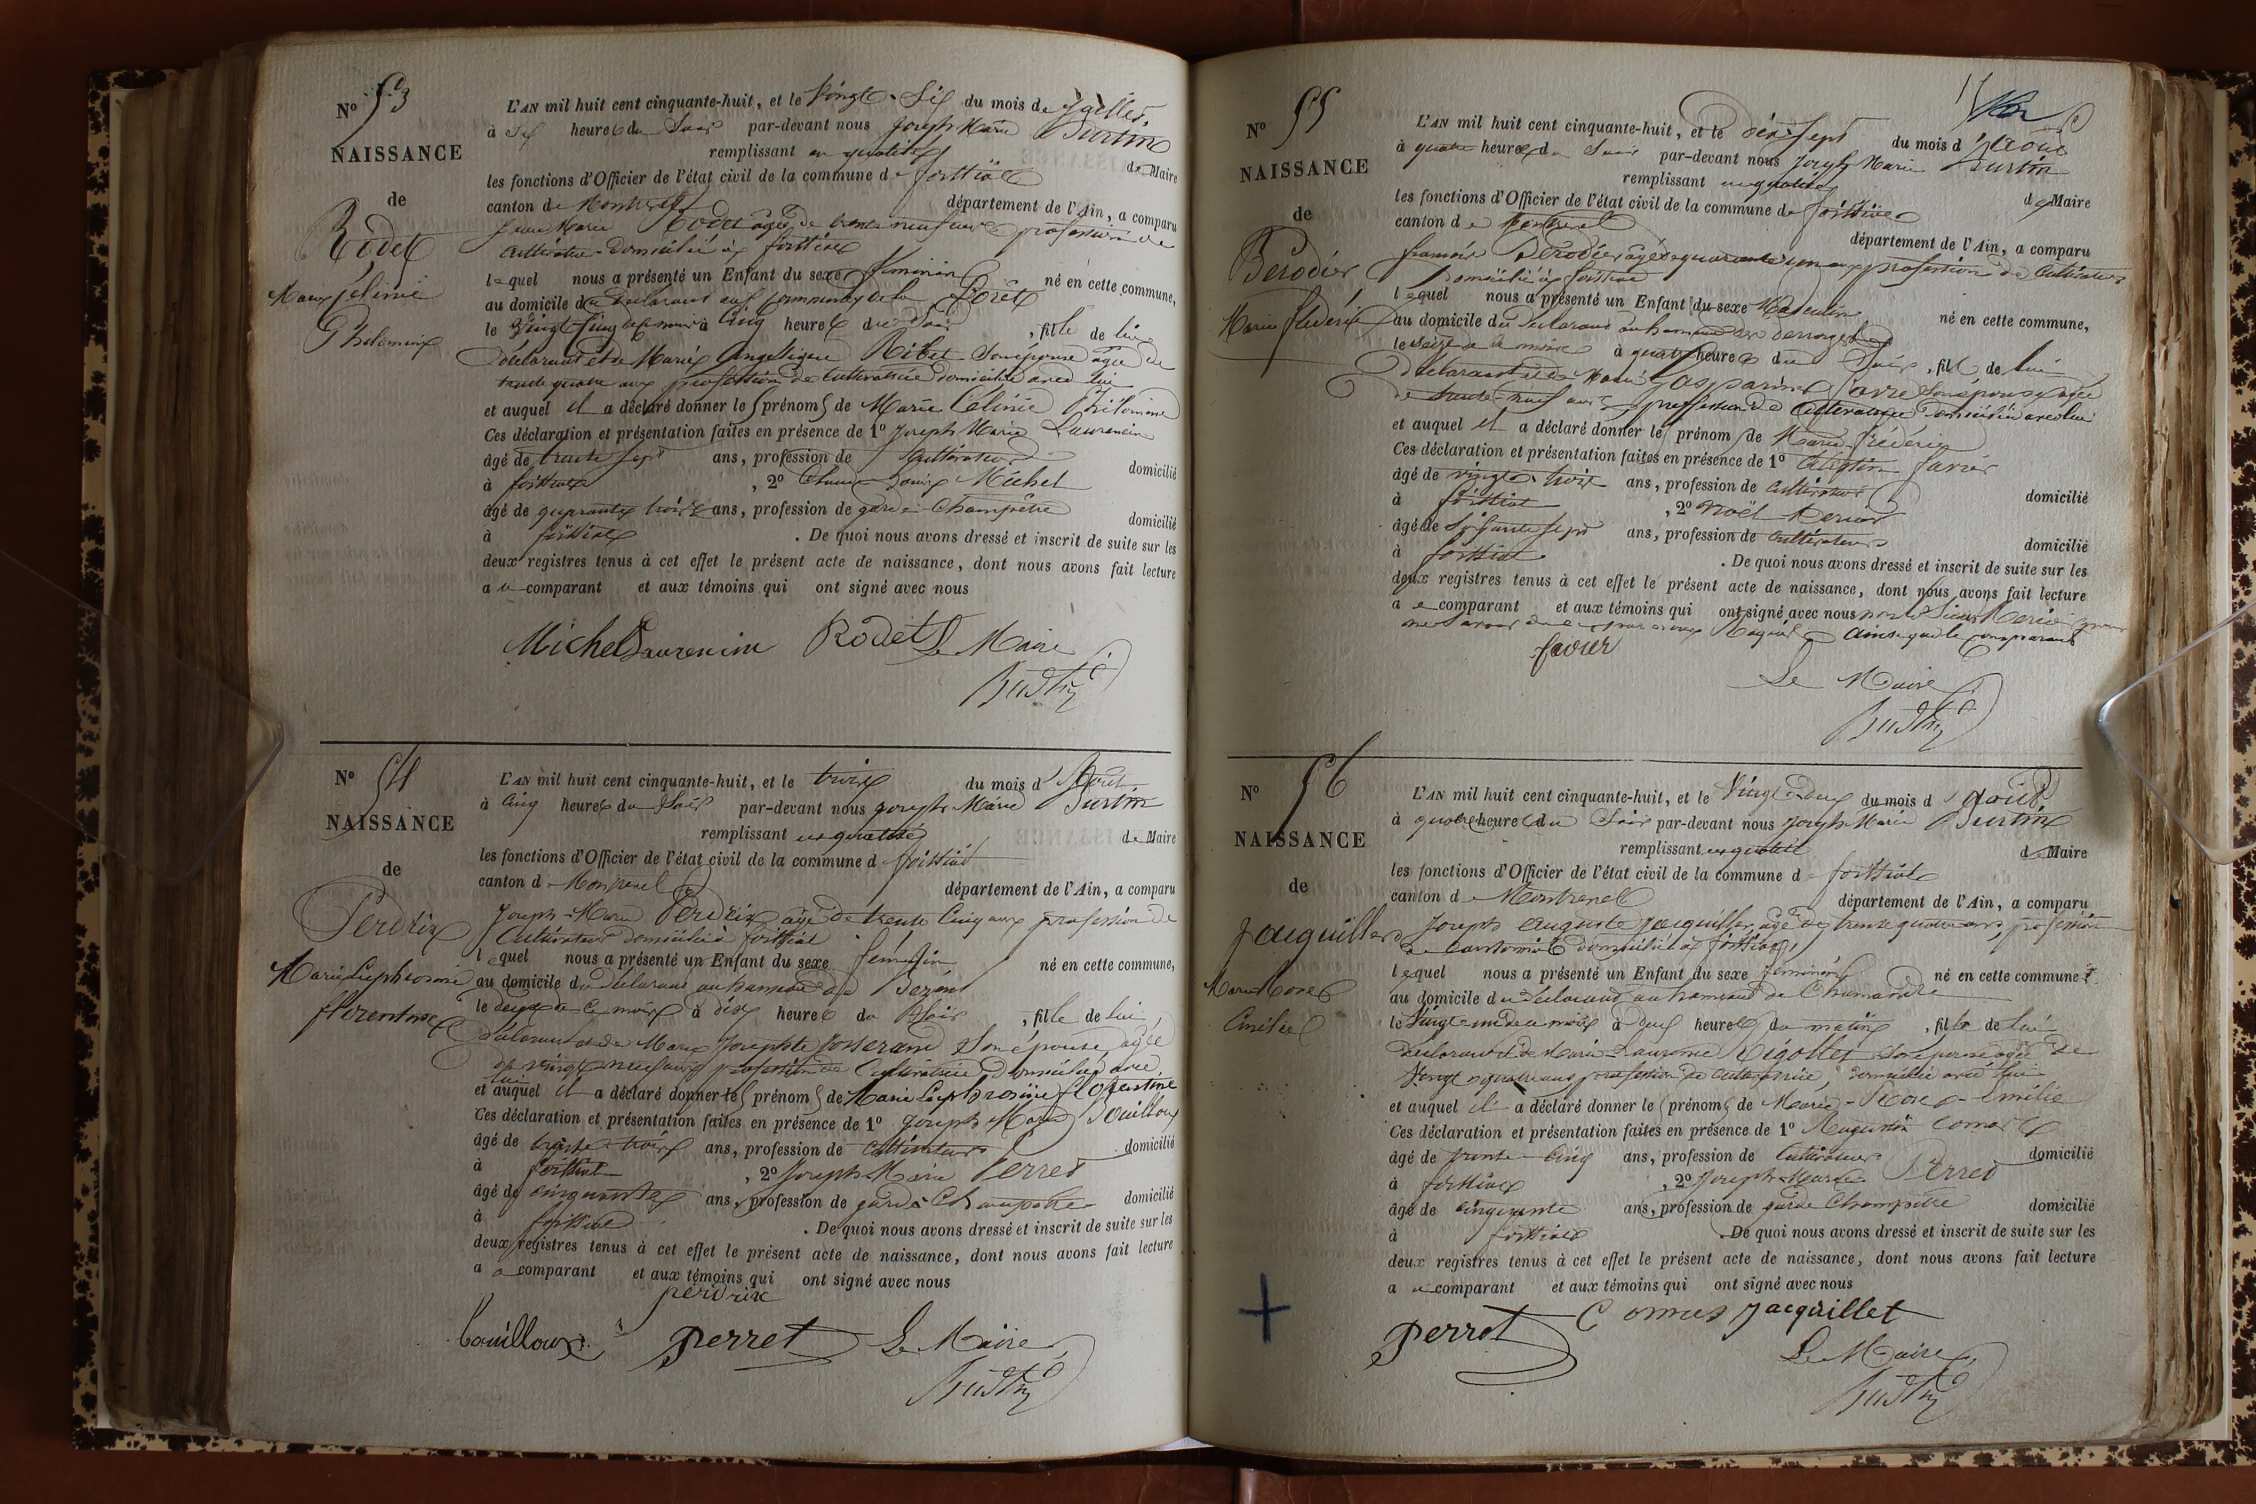 N° 53
NAISSANCE
de
Rodet
Marie Célinie
Philomine
L'AN mil huit cent cinquante-huit, et le Vingt-Six du mois de Juillet,
à six heures du Soir par-devant nous Joseph Marie Burtin
remplissant en qualité de Maire
les fonctions d'Officier de l'état civil de la commune de
canton de département de l'Ain, a comparu
Jean Marie Rodet âgé de trente neuf ans profession de
Cultivateur domicilié à
lequel nous a présenté un Enfant du sexe féminin né en cette commune,
au domicile du déclarant
le Vingt Cinq à Cinq heures du Soir, fille de lui
déclarant et de Marie Angélique Ribet Son épouse âgée de
trente quatre ans profession de Cultivatrice domiciliée avec lui
et auquel il a déclaré donner les prénoms de Marie Célinie Philomine
Ces déclaration et présentation faites en présence de 1° Joseph Marie Laurencin
âgé de trente sept ans, profession de Cultivateur domicilié
à , 2° Louis Michel
âgé de quarante trois ans, profession de garde-Champêtre domicilié
à . De quoi nous avons dressé et inscrit de suite sur les
deux registres tenus à cet effet le présent acte de naissance, dont nous avons fait lecture
au comparant et aux témoins qui ont signé avec nous
Michel Laurencin Rodet Le Maire
Burtin
N° 54
NAISSANCE
de
Perdrix
Marie Euphrosine
florentine
L'AN mil huit cent cinquante-huit, et le trois du mois d'Août
à Cinq heures du Soir par-devant nous Joseph Marie Burtin
remplissant en qualité de Maire
les fonctions d'Officier de l'état civil de la commune d
canton d département de l'Ain, a comparu
Joseph-Marie Perdrix âgé de trente Cinq ans profession de
Cultivateur domicilié à
lequel nous a présenté un Enfant du sexe féminin né en cette commune,
au domicile du déclarant au hameau de
le deux de ce mois à dix heures du Soir, fille de lui
déclarant et de Marie Josephte Josserand Son épouse âgée
de vingt neuf ans profession de Cultivatrice domiciliée avec
lui
et auquel il a déclaré donner les prénoms de Marie Euphrosine florentine
Ces déclaration et présentation faites en présence de 1° Joseph Marie Bouilloux
âgé de trente-trois ans, profession de Cultivateur domicilié
à , 2° Joseph Marie Perret
âgé de cinquante ans, profession de garde Champêtre domicilié
à . De quoi nous avons dressé et inscrit de suite sur les
deux registres tenus à cet effet le présent acte de naissance, dont nous avons fait lecture
au comparant et aux témoins qui ont signé avec nous
perdrix
bouilloux perret Le Maire
Burtin
N° 55
NAISSANCE
de
Bérodier
Marie fréderic
L'AN mil huit cent cinquante-huit, et le dix-sept du mois d'Août
à quatre heures du Soir par-devant nous Joseph Marie Burtin
remplissant en qualité de Maire
les fonctions d'Officier de l'état civil de la commune de
canton de département de l'Ain, a comparu
françois Bérodier âgé de quarante un ans profession de Cultivateur
domicilié à
lequel nous a présenté un Enfant du sexe Masculin né en cette commune,
au domicile du déclarant au hameau
le seize de ce mois à quatre heures du Soir, fils de lui
déclarant et de Marie Gasparine favre Son épouse âgée
de trente-neuf ans profession de Cultivatrice domiciliée avec lui
et auquel il a déclaré donner les prénom de Marie fréderic
Ces déclaration et présentation faites en présence de 1° Célestin favier
âgé de vingt-trois ans, profession de Cultivateur domicilié
à , 2° Noël
âgé de Soixante Sept ans, profession de Cultivateur domicilié
à . De quoi nous avons dressé et inscrit de suite sur les
deux registres tenus à cet effet le présent acte de naissance, dont nous avons fait lecture
au comparant et aux témoins qui ont signé avec nous
ainsi que le comparant
favier
Le Maire
Burtin
N° 56
NAISSANCE
de
Jacquillet
Marie Rose
Emélie
L'AN mil huit cent cinquante-huit, et le Vingt-deux du mois d'août
à quatre heures du Soir par-devant nous Joseph Marie Burtin
remplissant en qualité de Maire
les fonctions d'Officier de l'état civil de la commune d
canton de département de l'Ain, a comparu
Joseph auguste Jacquillet âgé de trente quatre ans, profession
de Cantonnier domicilié à
lequel nous a présenté un Enfant du sexe féminin né en cette commune
au domicile du déclarant au hameau de Chamandre
le Vingt-un de ce mois à deux heures du matin, fille de lui
déclarant et de Marie Laurence Rigollet Son épouse âgée de
Vingt-quatre ans profession de cultivatrice, domiciliée avec lui
et auquel il a déclaré donner les prénoms de Marie-Rose-Emélie
Ces déclaration et présentation faites en présence de 1° Augustin Comas
âgé de trente-Cinq ans, profession de Cultivateur domicilié
à , 2° Joseph-Marie Perret
âgé de cinquante ans, profession de garde Champêtre domicilié
à . De quoi nous avons dressé et inscrit de suite sur les
deux registres tenus à cet effet le présent acte de naissance, dont nous avons fait lecture
au comparant et aux témoins qui ont signé avec nous
perret Jacquillet
Le Maire
Burtin